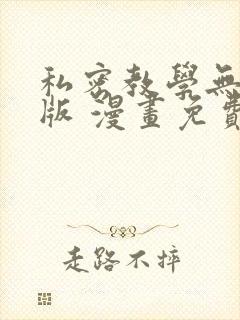 私密教學無
版 漫畫免費
走路不摔